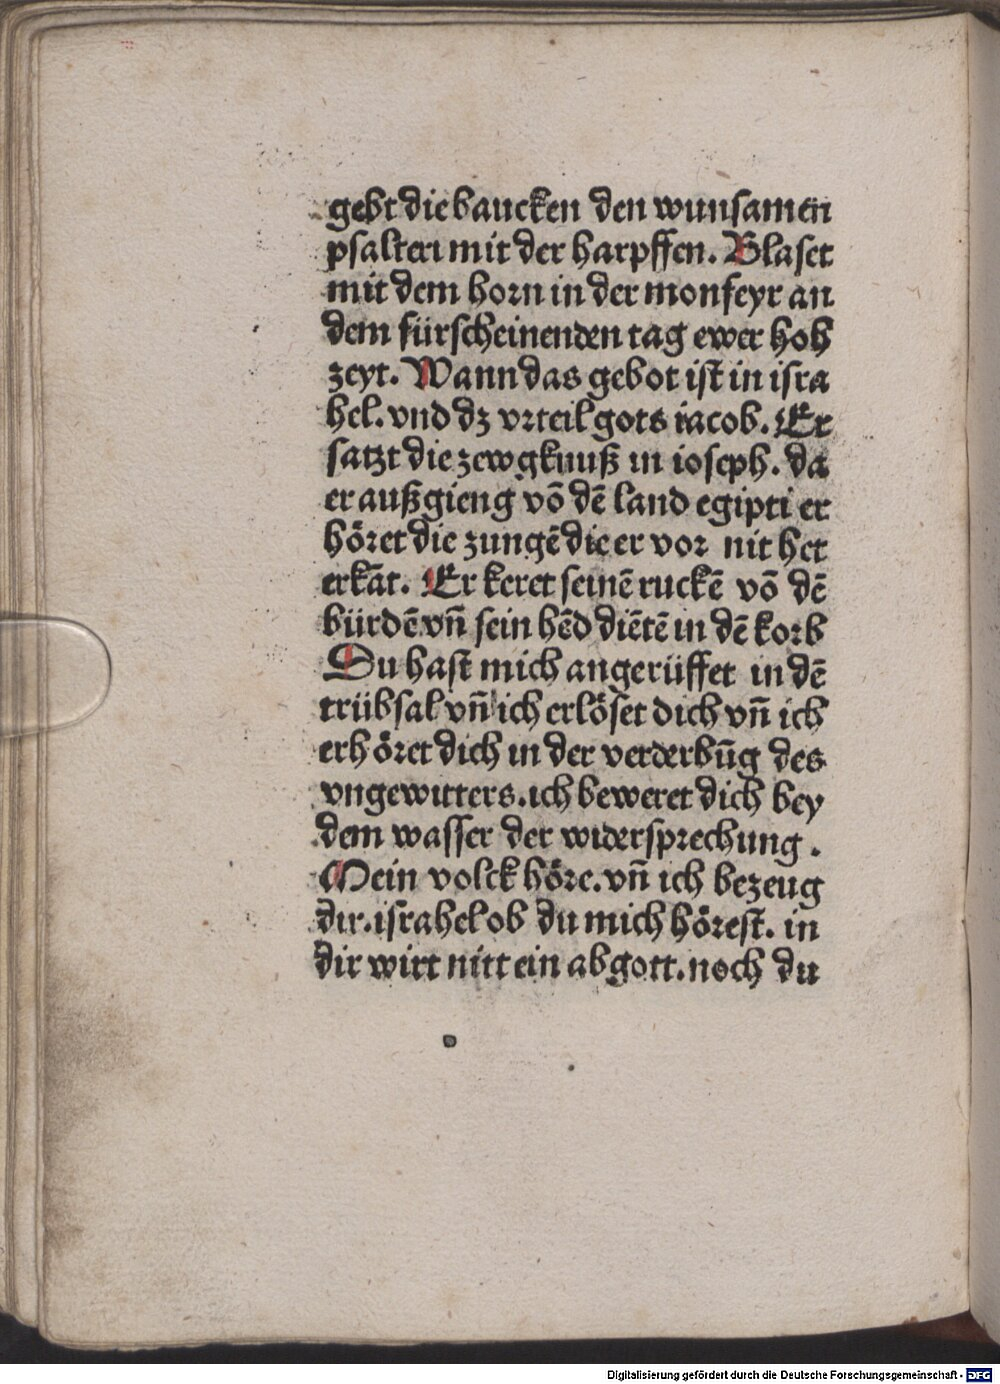 gebt die baucken den wunsamen
psalteri mit der harpffen. Blaset
mit dem horn in der monfeyr an
dem fürscheinenden tag ewer hoh
zeyt. Wann das gebot ist in isra
hel. vnd dz vrteil gots iacob. Er
satzt die zewgknuß in ioseph. da
er außgieng võ dẽ land egipti er
höret die zungẽ die er vor nit het
erkãt. Er keret seinẽ ruckẽ võ dẽ
bürdẽ vñ sein hẽd diẽtẽ in dẽ korb
Du hast mich angerüffet in dẽ
trübsal vñ ich erlöset dich vñ ich
erhöret dich in der verderbũg des
vngewitters. ich beweret dich bey
dem wasser der widersprechung.
Mein volck höre. vñ ich bezeug
dir. israhel ob du mich hörest. in
dir wirt nitt ein abgott. noch du
Digitalisierung gefördert durch die Deutsche Forschungsgemeinschaft - DFG